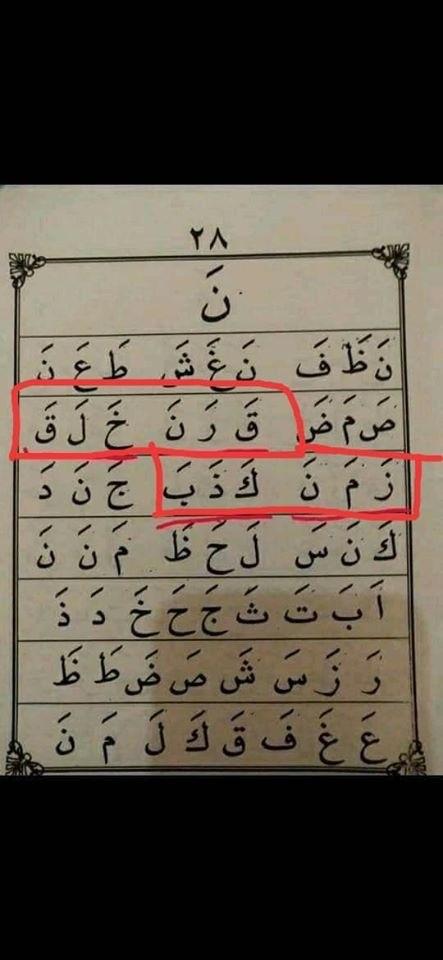 ٢٨
نَ
نَ ظَ فَ نَ غَ شَ طَ عَ نَ
صَ مَ ضَ قَ رَ نَ خَ لَ قَ
زَ مَ نَ كَ ذَ بَ جَ نَ دَ
كَ نَ سَ لَ حَ ظَ مَ نَ نَ
اَ بَ تَ ثَ جَ حَ خَ دَ ذَ
رَ زَ سَ شَ صَ ضَ طَ ظَ
عَ غَ فَ قَ كَ لَ مَ نَ